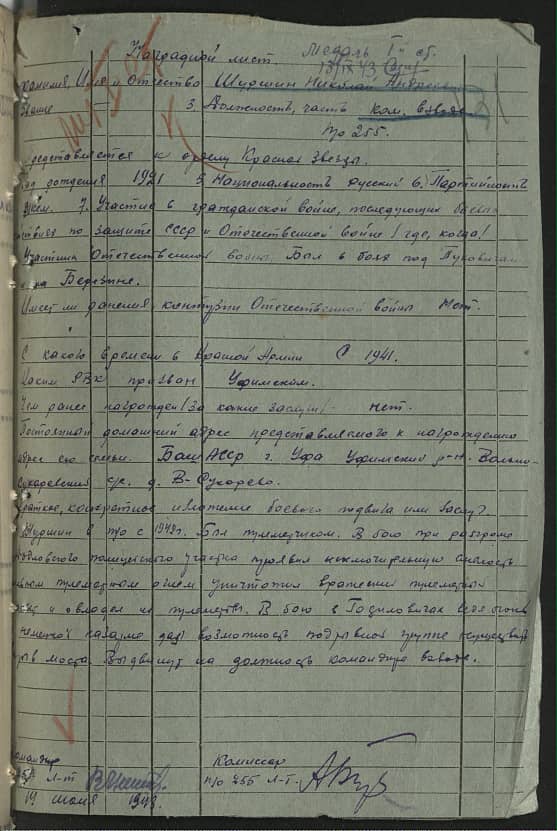 Наградной лист.
Медаль I й ст.
18/IX 43
Фамилия, Имя и Отчество Шуршин Николай Андреевич
3. Должность, часть ком. взвода
п/о 255.
представляется к ордену Красная Звезда.
год рождения 1921 5 Национальность русский 6, Партийность
7. Участие в гражданской войне, последующих боевых
действиях по защите СССР и Отечественной войне /где, когда/
Участник Отечественной войны. Был в боях под
на Березине.
Имеет ли ранения контузии Отечественной войны Нет.
С какого времени в Красной Армии С 1941.
Каким РВК призван Уфимском.
Чем ранее награжден /за какие заслуги/ - нет.
Постоянный домашний адрес представляемого к награждению
адрес его семьи. БашАССР г. Уфа Уфимский р-н. Вольно-
Сухаревский с/с. д. В-Сухарево.
Краткое, конкретное изложение боевого подвига или заслуг.
Шуршин в п/о с 1942г. Был пулеметчиком. В бою при разгроме
полицейского участка проявил исключительную смелость
своим пулеметным огнем уничтожил вражеский пулеметный
и овладел их пулеметом. В бою в Годиловичах вел огонь
немецкой казарме дав возможность подрывной группе осуществить
взрыв моста. Выдвинут на должность командира взвода.
Командир Комиссар
Л-т п/о 255 Л-т.
19 июня 1943.